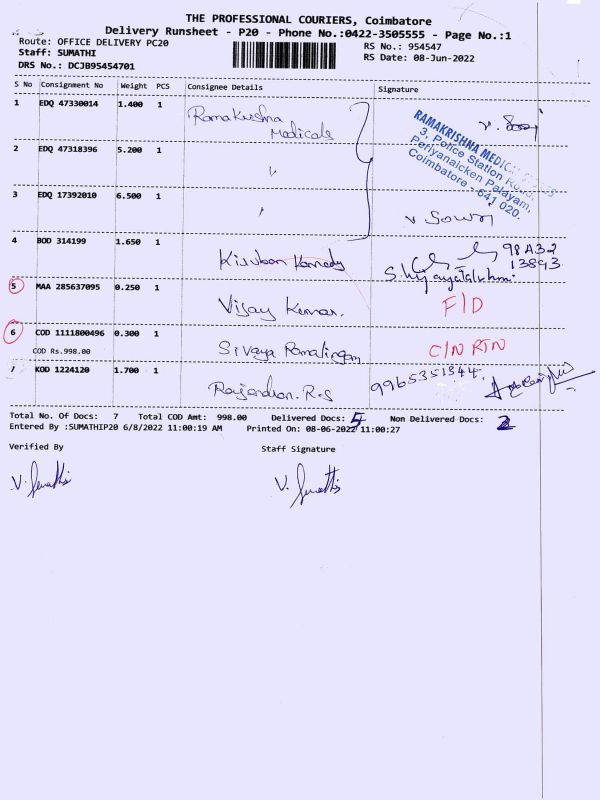 THE PROFESSIONAL COURIERS, Coimbatore
Delivery Runsheet - P20 - Phone No.:0422-3505555 - Page No.:1
Route: OFFICE DELIVERY PC20
RS No.: 954547
Staff: SUMATHI
RS Date: 08-Jun-2022
DRS No.: DCJB95454701
S No Consignment No Weight PCS Consignee Details Signature
1 EDQ 47330014 1.400 1 Ramakrishna Medicals
RAMAKRISHNA
3, Police Station Road,
Periyanaicken Palayam,
Coimbatore - 641 020.
2 EDQ 47318396 5.200 1 "
3 EDQ 17392010 6.500 1 "
4 BOD 314199 1.650 1 Kennedy
S. Vijayalakshmi
13893
5 MAA 285637095 0.250 1 Vijay Kumar. F/D
6 COD 1111800496 0.300 1 Sivaya Ramalingam C/N RTN
COD Rs.998.00
7 KOD 1224120 1.700 1 Rajendran. R.S 9965351844
Total No. Of Docs: 7 Total COD Amt: 998.00 Delivered Docs: 5 Non Delivered Docs: 2
Entered By :SUMATHIP20 6/8/2022 11:00:19 AM Printed On: 08-06-2022 11:00:27
Verified By Staff Signature
V. Sumathi V. Sumathi